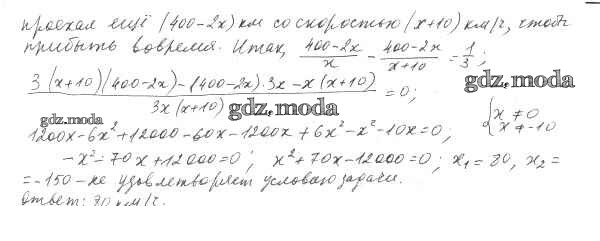 проехал ещё (400-2x) км со скоростью (x+10) км/ч, чтобы
прибыть вовремя. Итак, \frac{400-2x}{x} - \frac{400-2x}{x+10} = \frac{1}{3};
\frac{3(x+10)(400-2x)-(400-2x)·3x-x(x+10)}{3x(x+10)} = 0; {x ≠ 0 x ≠ -10
gdz.moda
gdz.moda
gdz.moda
1200x-6x²+12000-60x-1200x+6x²-x²-10x=0;
-x²-70x+12000=0; x²+70x-12000=0; x₁=80, x₂=
=-150-не удовлетворяет условию задачи.
Ответ: 80 км/ч.